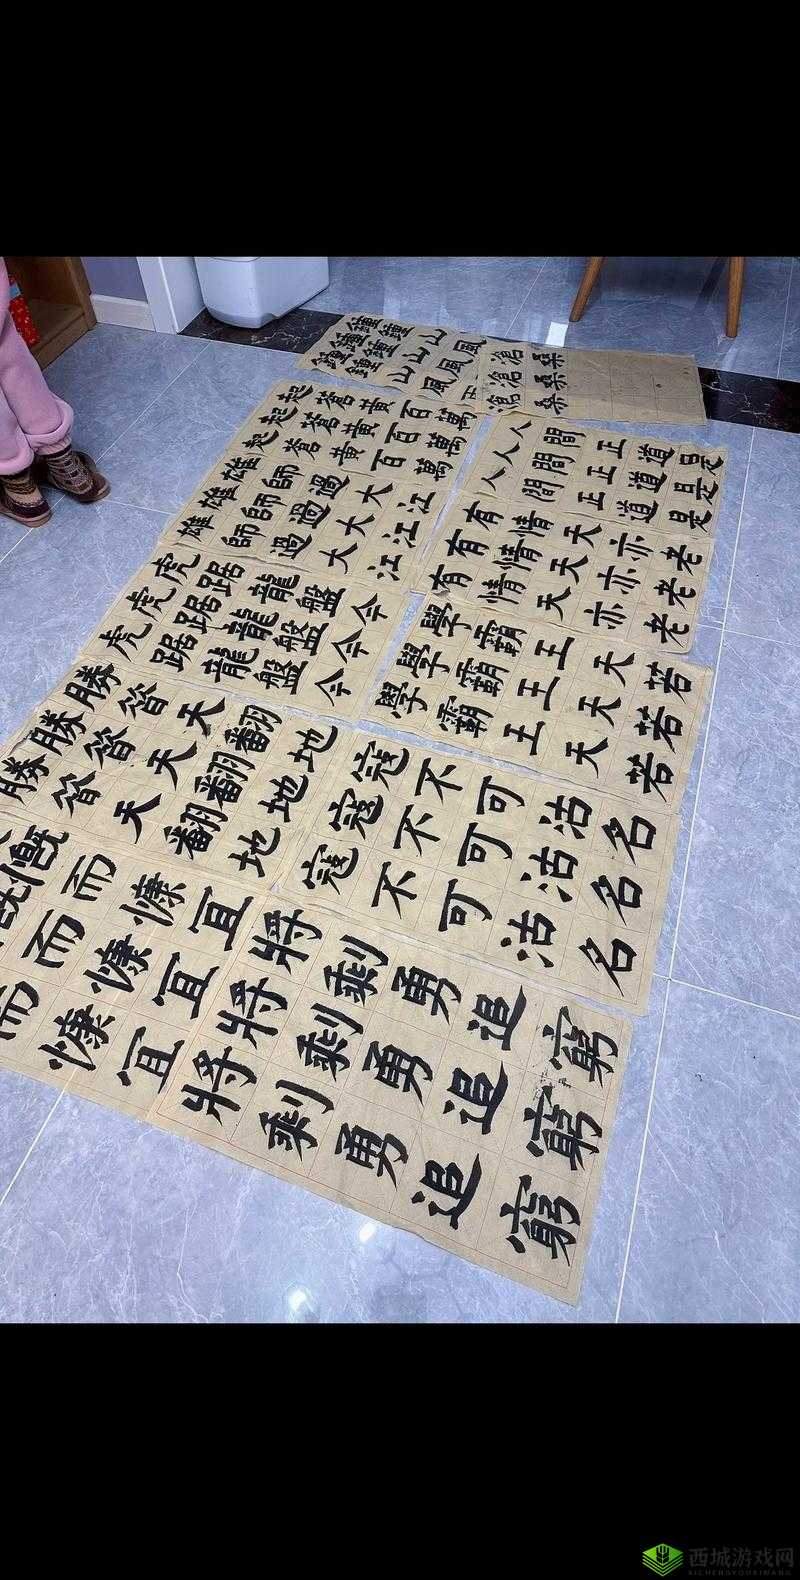 鐘鐘山風
鐘鐘山風
鐘鐘山風
起蒼黃百萬
起蒼黃百萬
起蒼黃百萬
雄師過大江
雄師過大江
雄師過大江
虎踞龍盤今
虎踞龍盤今
虎踞龍盤今
勝昔天翻地
勝昔天翻地
勝昔天翻地
慨而慷宜
慨而慷宜
而慷宜
將剩勇追窮
將剩勇追窮
將剩勇追窮
寇不可沽名
寇不可沽名
寇不可沽名
學霸王天若
學霸王天若
學霸王天若
有情天亦老
有情天亦老
有情天亦老
人間正道是
人間正道是
人間正道是
滄桑
滄桑
滄桑
西城游戏网
XICHENGYOUXIWANG